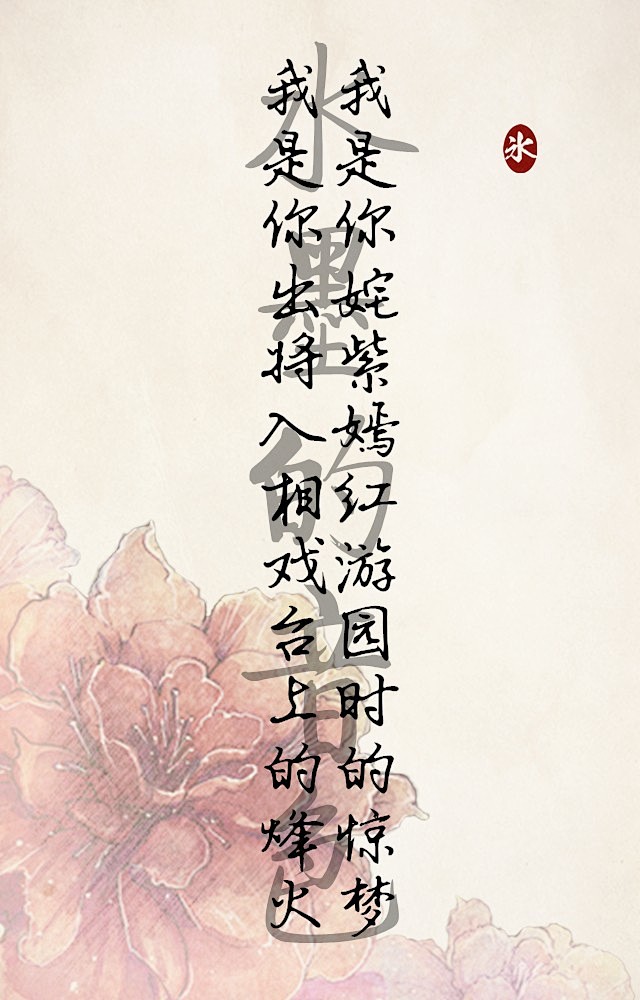 我是你姹紫嫣红游园时的惊梦
我是你出将入相戏台上的烽火
水墨的音色
氷